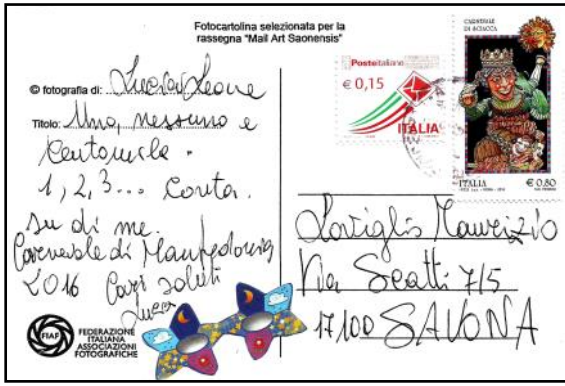 Fotocartolina selezionata per la
rassegna "Mail Art Saonensis"
© fotografia di: Lucia Leone
Titolo: Uno, nessuno e
centomila.
1, 2, 3... Conta.
su di me.
Carnevale di Manfredonia
2016 Cari saluti
FIAF
FEDERAZIONE
ITALIANA
ASSOCIAZIONI
FOTOGRAFICHE
Posteitaliane
€ 0,15
ITALIA
CARNEVALE
DI SCIACCA
ITALIA
€ 0,80
Maurizio
Via Scatti 7/5
17100 SAVONA